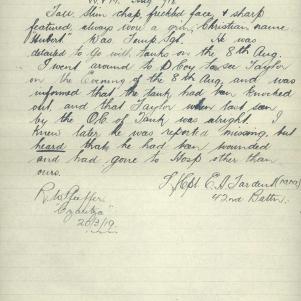 Tall Slim chap, freckled face, & sharp
featured, always wore a grin, Christian name
"Hubert" Was Temp Sgt. He was
detailed to Go with tanks on the 8th Aug.
I went around to D Coy to see Taylor
on the Evening of the 8th Aug, and was
informed that the tank had been knocked
out, and that Taylor when last seen
by the O.C. of Tank was alright. I
knew later he was reported missing, but
heard that he had been wounded
and had gone to Hosp other than
ours.
42nd Battn.
20/3/19